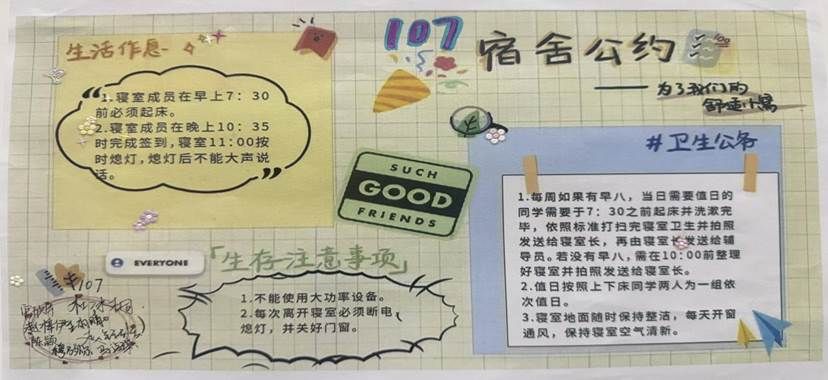 生活作息
1.寝室成员在早上7：30
前必须起床。
2.寝室成员在晚上10：35
时完成签到,寝室11:00按
时熄灯,熄灯后不能大声说
话。
107
宿舍公约
为了我们的
舒适小窝
SUCH
GOOD
FRIENDS
#卫生公务
1.每周如果有早八，当日需要值日的
同学需要于7：30之前起床并洗漱完
毕，依照标准打扫完寝室卫生并拍照
发送给寝室长，再由寝室长发送给辅
导员。若没有早八，需在10:00前整理
好寝室并拍照发送给寝室长。
2.值日按照上下床同学两人为一组依
次值日。
3.寝室地面随时保持整洁，每天开窗
通风，保持寝室空气清新。
EVERYONE
「生存注意事项」
1.不能使用大功率设备。
2.每次离开寝室必须断电，
熄灯，并关好门窗。
107